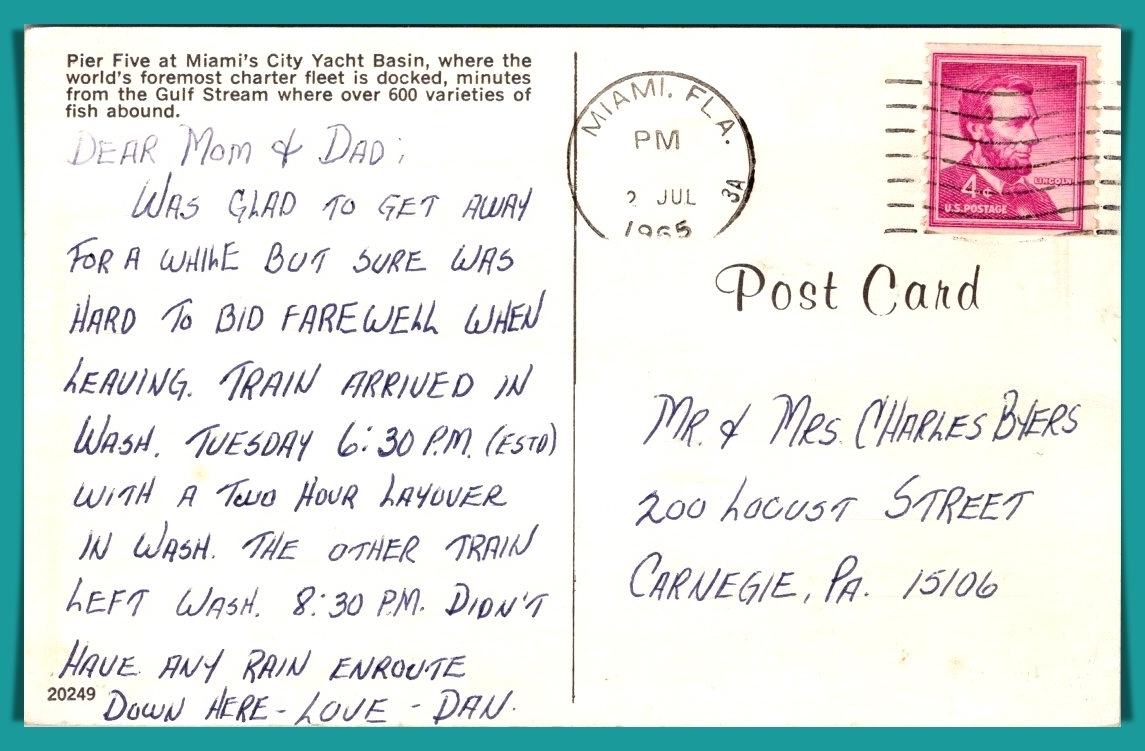 Pier Five at Miami's City Yacht Basin, where the
world's foremost charter fleet is docked, minutes
from the Gulf Stream where over 600 varieties of
fish abound.
DEAR MOM & DAD;
WAS GLAD TO GET AWAY
FOR A WHILE BUT SURE WAS
HARD TO BID FAREWELL WHEN
LEAVING. TRAIN ARRIVED IN
WASH. TUESDAY 6:30 P.M. (ESTD)
WITH A TWO HOUR LAYOVER
IN WASH. THE OTHER TRAIN
LEFT WASH. 8:30 P.M. DIDN'T
HAVE ANY RAIN ENROUTE
DOWN HERE - LOVE - DAN.
20249
MIAMI, FLA.
PM
2 JUL
1965
3A
LINCOLN
4¢
U.S. POSTAGE
Post Card
MR. & MRS. CHARLES BYERS
200 LOCUST STREET
CARNEGIE, PA. 15106